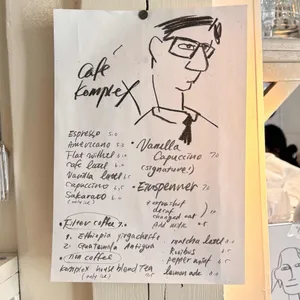 Café
Komplex
Espresso 5.0
Americano 5.0
Flat white 6.0
Cafe latte 6.0
Vanilla latte 6.5
Cappuccino 6.5
Sakarato 6.5
• Vanilla
Cappuccino 7.0
(signature!)
• Einspenner 7.0
+ extra shot
decaf
changed oat
Add milk
Filter coffee 7.0
1. Ethiopia Yirgacheffe
2. Guatemala Antigua
non coffee
Komplex house blend tea
matcha latte
Ruibus
pepper mint
lemonade